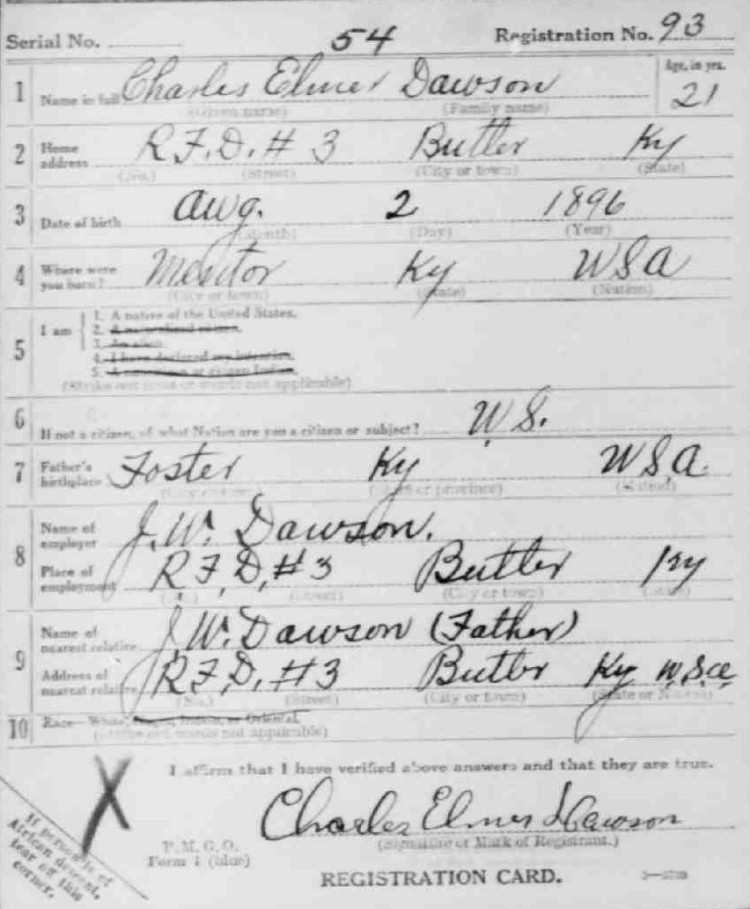 Serial No. 54 Registration No. 93
1 Name in full Charles Elmer Dawson Age, in yrs.
(Given name) (Family name) 21
2 Home address R.F.D. # 3 Butler Ky
(No.) (Street) (City or town) (State)
3 Date of birth Aug. 2 1896
(Month) (Day) (Year)
4 Where were you born? Mentor Ky USA
(City or town) (State) (Nation)
5 I am
1. A native of the United States.
2. A naturalized citizen.
3. An alien.
4. I have declared my intention.
5. A noncitizen or citizen Indian.
(Strike out lines or words not applicable)
6 If not a citizen, of what Nation are you a citizen or subject? U.S.
7 Father's birthplace Foster Ky USA.
(City or town) (State or province) (Nation)
8 Name of employer J.W. Dawson.
Place of employment R.F.D. #3 Butler Ky
(No.) (Street) (City or town) (State)
9 Name of nearest relative J.W. Dawson (Father)
Address of nearest relative R.F.D. #3 Butler Ky U.S.a
(No.) (Street) (City or town) (State or Nation)
10 Race—White, Negro, Indian, or Oriental
(Strike out words not applicable)
I affirm that I have verified above answers and that they are true.
X
Charles Elmer Dawson
(Signature or Mark of Registrant.)
P. M. G. O.
Form 1 (blue)
If person is of
African descent,
tear off this
corner.
REGISTRATION CARD.